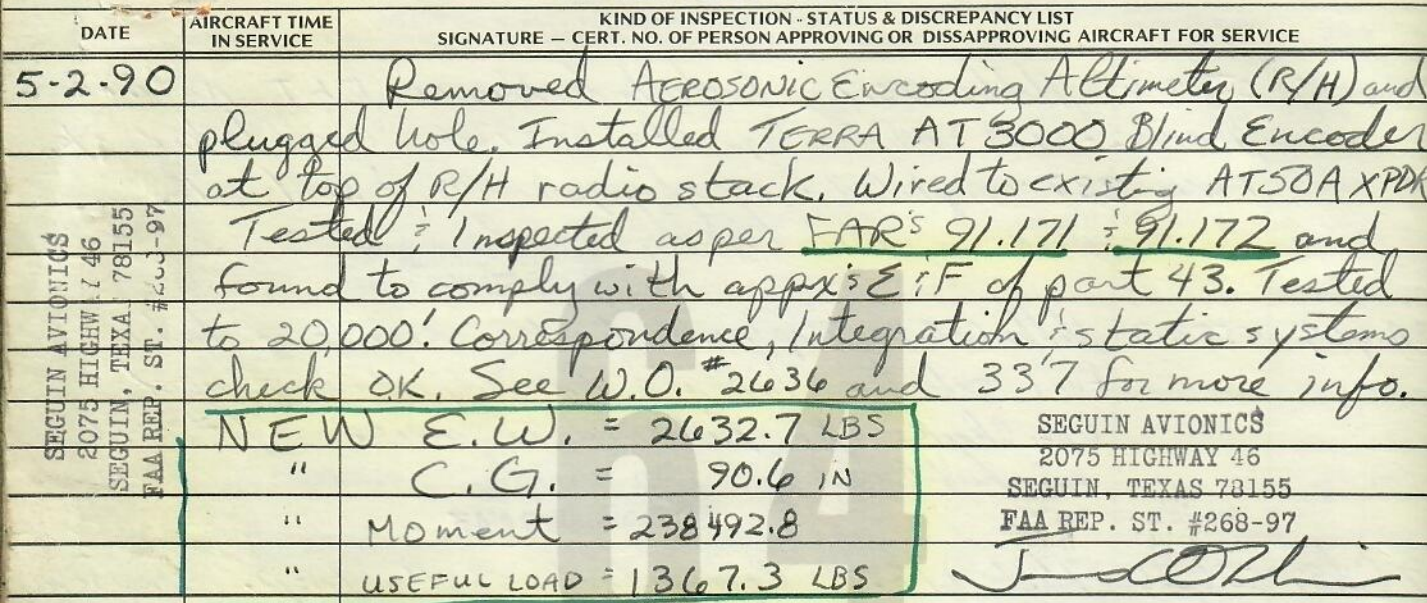 DATE
AIRCRAFT TIME
IN SERVICE
KIND OF INSPECTION - STATUS & DISCREPANCY LIST
SIGNATURE — CERT. NO. OF PERSON APPROVING OR DISSAPPROVING AIRCRAFT FOR SERVICE
5-2-90
Removed AEROSONIC Encoding Altimeter (R/H) and
plugged hole. Installed TERRA AT3000 Blind Encoder
at top of R/H radio stack. Wired to existing AT50A XPDR
Tested & Inspected as per FAR's 91.171 & 91.172 and
found to comply with appx's E & F of part 43. Tested
to 20,000'. Correspondence, Integration & static systems
check OK. See W.O. #2636 and 337 for more info.
NEW E.W. = 2632.7 LBS
" C.G. = 90.6 IN
" Moment = 238492.8
" USEFUL LOAD = 1367.3 LBS
SEGUIN AVIONICS
2075 HIGHWAY 46
SEGUIN, TEXAS 78155
FAA REP. ST. #268-97
SEGUIN AVIONICS
2075 HIGHWAY 46
SEGUIN, TEXAS 78155
FAA REP. ST. #268-97
64